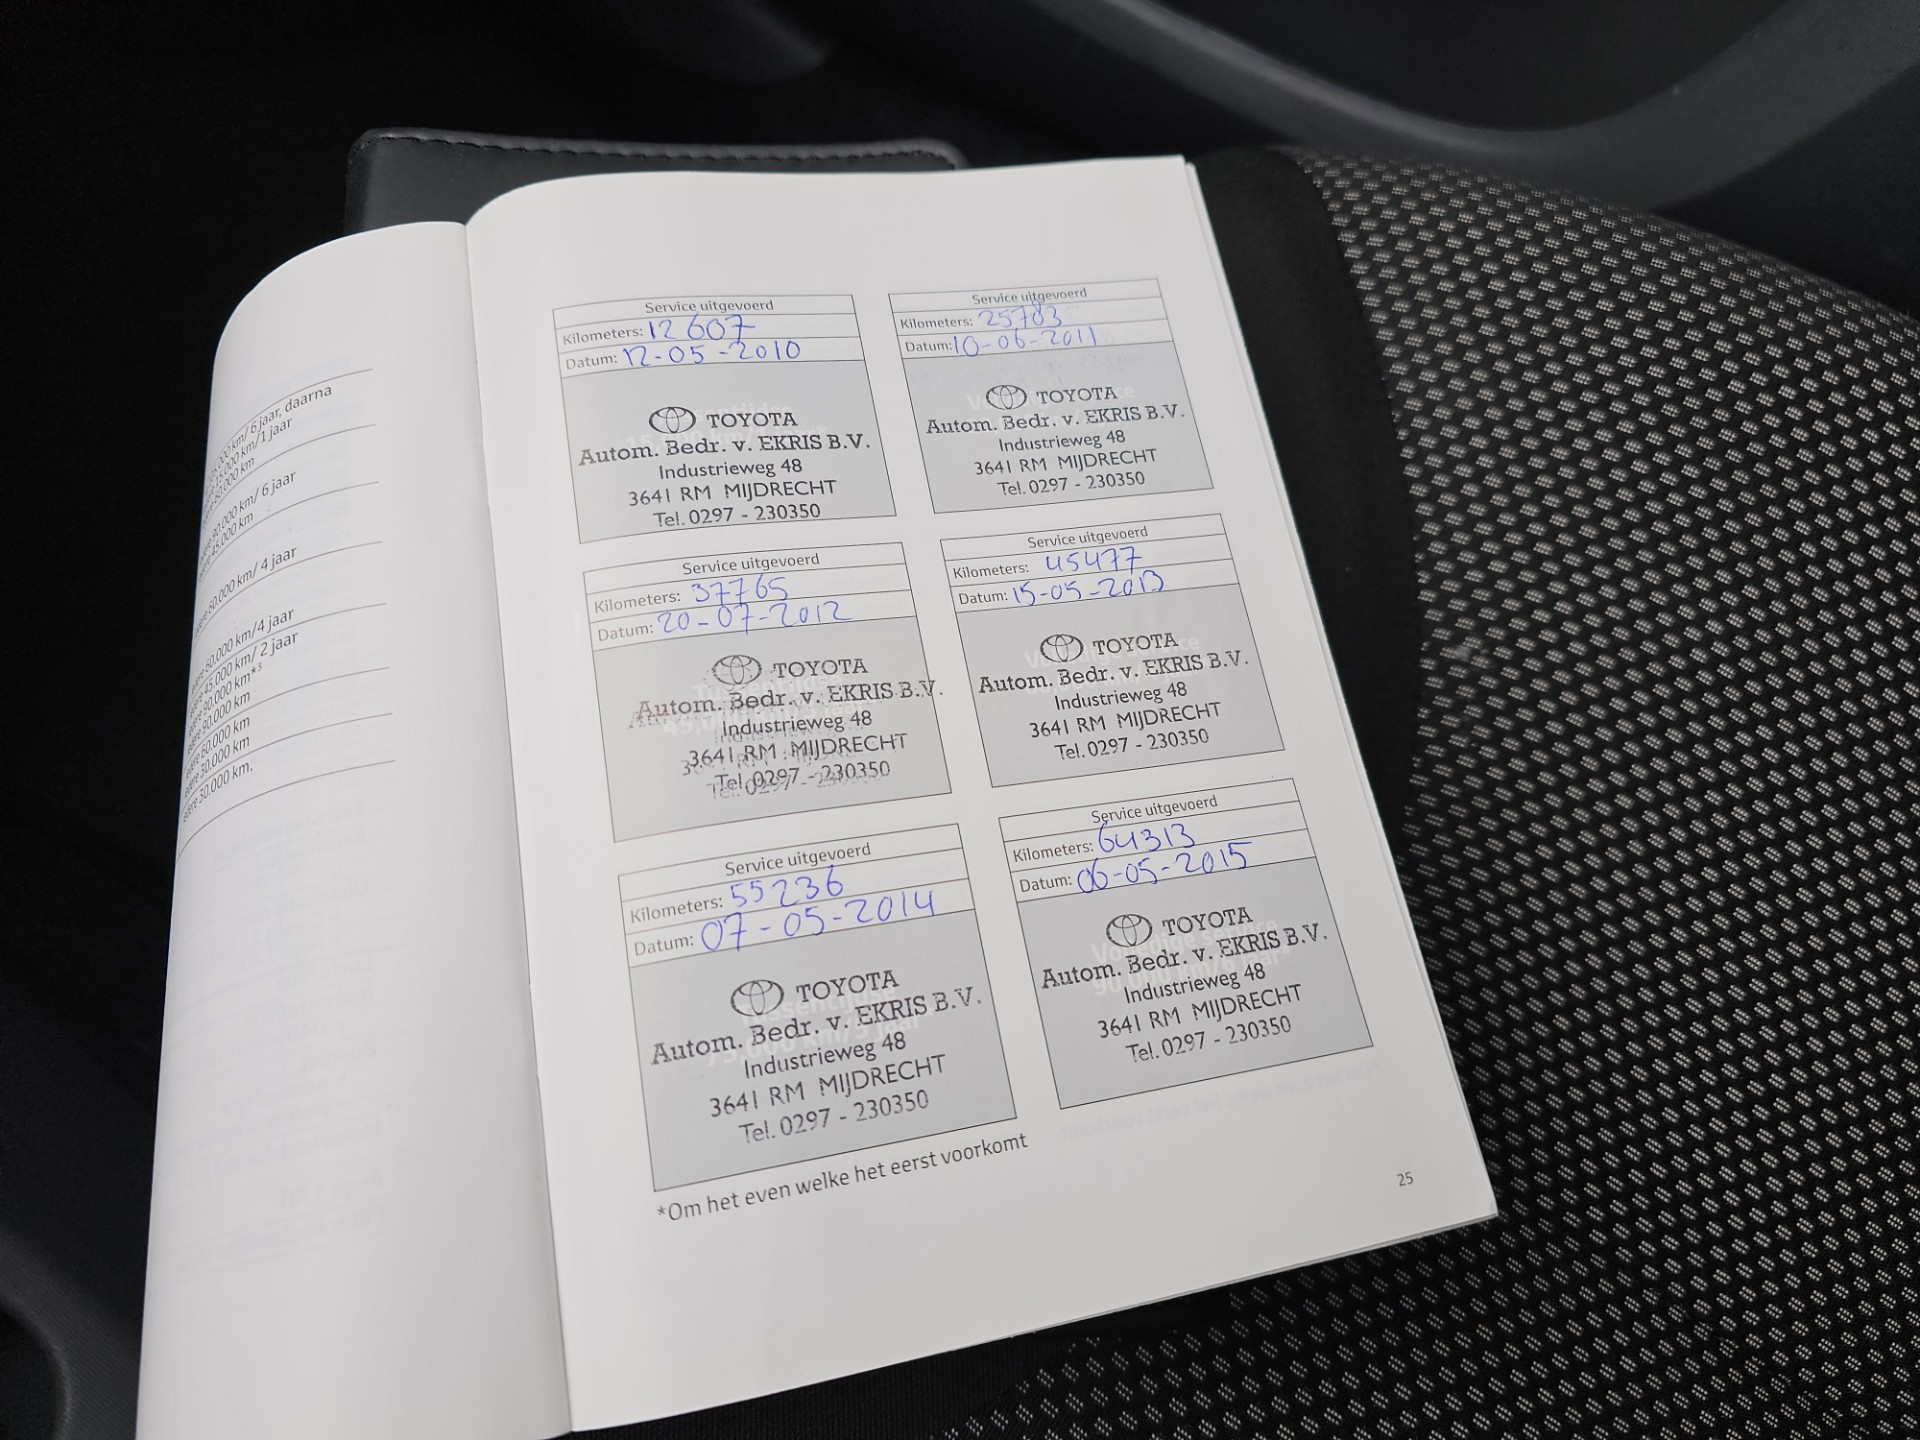 .000 km/ 6 jaar, daarna
15.000 km/1 jaar
60.000 km
90.000 km/ 6 jaar
45.000 km
60.000 km/ 4 jaar
60.000 km/4 jaar
iedere 45.000 km/ 2 jaar
iedere 90.000 km*³
iedere 90.000 km
iedere 60.000 km
iedere 30.000 km
iedere 30.000 km.
Service uitgevoerd
Kilometers: 12607
Datum: 12-05-2010
TOYOTA
Autom. Bedr. v. EKRIS B.V.
Industrieweg 48
3641 RM MIJDRECHT
Tel. 0297 - 230350
Service uitgevoerd
Kilometers: 25783
Datum: 10-06-2011
TOYOTA
Autom. Bedr. v. EKRIS B.V.
Industrieweg 48
3641 RM MIJDRECHT
Tel. 0297 - 230350
Service uitgevoerd
Kilometers: 37765
Datum: 20-07-2012
TOYOTA
Autom. Bedr. v. EKRIS B.V.
Industrieweg 48
3641 RM MIJDRECHT
Tel. 0297 - 230350
Service uitgevoerd
Kilometers: 45477
Datum: 15-05-2013
TOYOTA
Autom. Bedr. v. EKRIS B.V.
Industrieweg 48
3641 RM MIJDRECHT
Tel. 0297 - 230350
Service uitgevoerd
Kilometers: 55236
Datum: 07-05-2014
TOYOTA
Autom. Bedr. v. EKRIS B.V.
Industrieweg 48
3641 RM MIJDRECHT
Tel. 0297 - 230350
Service uitgevoerd
Kilometers: 64313
Datum: 06-05-2015
TOYOTA
Autom. Bedr. v. EKRIS B.V.
Industrieweg 48
3641 RM MIJDRECHT
Tel. 0297 - 230350
*Om het even welke het eerst voorkomt
25